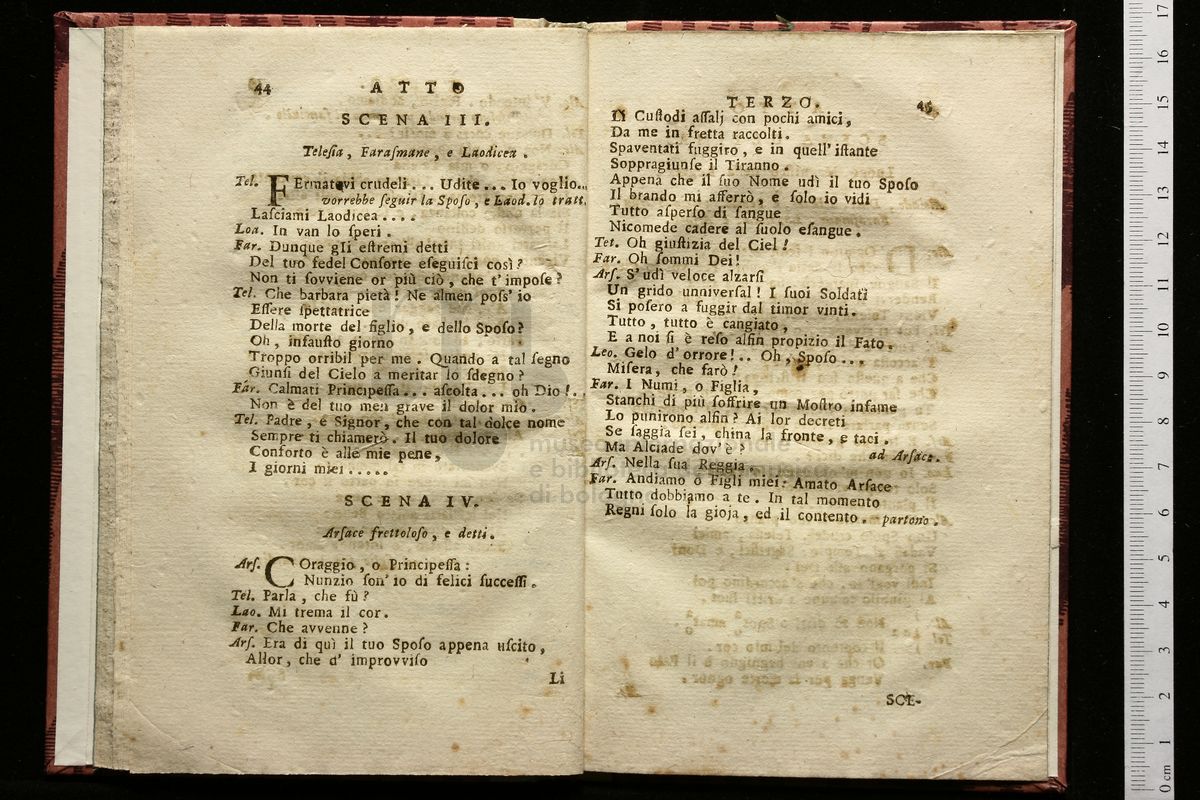 44 ATTO
SCENA III.
Telesia, Faraſmane, e Laodicea.
Tel. FErmatevi crudeli... Udite... Io voglio...
vorrebbe ſeguir lo Spoſo, e Laod. lo tratt.
Laſciami Laodicea....
Loa. In van lo ſperi.
Far. Dunque gli eſtremi detti
Del tuo fedel Conſorte eſeguiſci così?
Non ti ſovviene or più ciò, che t' impoſe?
Tel. Che barbara pietà! Ne almen poſs' io
Eſſere ſpettatrice
Della morte del figlio, e dello Spoſo?
Oh, infauſto giorno
Troppo orribil per me. Quando a tal ſegno
Giunſi del Cielo a meritar lo ſdegno?
Far. Calmati Principeſſa... aſcolta... oh Dio!..
Non è del tuo men grave il dolor mio.
Tel. Padre, e Signor, che con tal dolce nome
Sempre ti chiamerò. Il tuo dolore
Conforto è alle mie pene,
I giorni miei.....
SCENA IV.
Arſace frettoloſo, e detti.
Arſ. COraggio, o Principeſſa:
Nunzio ſon' io di felici ſucceſſi.
Tel. Parla, che fù?
Lao. Mi trema il cor.
Far. Che avvenne?
Arſ. Era di quì il tuo Spoſo appena uſcito,
Allor, che d' improvviſo
Li
TERZO. 45
Li Cuſtodi aſſalj con pochi amici,
Da me in fretta raccolti.
Spaventati fuggiro, e in quell' iſtante
Soppragiunſe il Tiranno.
Appena che il ſuo Nome udì il tuo Spoſo
Il brando mi afferrò, e ſolo io vidi
Tutto aſperſo di ſangue
Nicomede cadere al ſuolo eſangue.
Tet. Oh giuſtizia del Ciel!
Far. Oh ſommi Dei!
Arſ. S' udì veloce alzarſi
Un grido unniverſal! I ſuoi Soldati
Si poſero a fuggir dal timor vinti.
Tutto, tutto è cangiato,
E a noi ſi è reſo alfin propizio il Fato.
Leo. Gelo d' orrore!.. Oh, Spoſo...
Miſera, che farò!
Far. I Numi, o Figlia,
Stanchi di più ſoffrire un Moſtro infame
Lo punirono alfin? Ai lor decreti
Se ſaggia ſei, china la fronte, e taci.
Ma Alciade dov' è? ad Arſace.
Arſ. Nella ſua Reggia.
Far. Andiamo o Figli miei: Amato Arſace
Tutto dobbiamo a te. In tal momento
Regni ſolo la gioja, ed il contento. partono.
SCE-